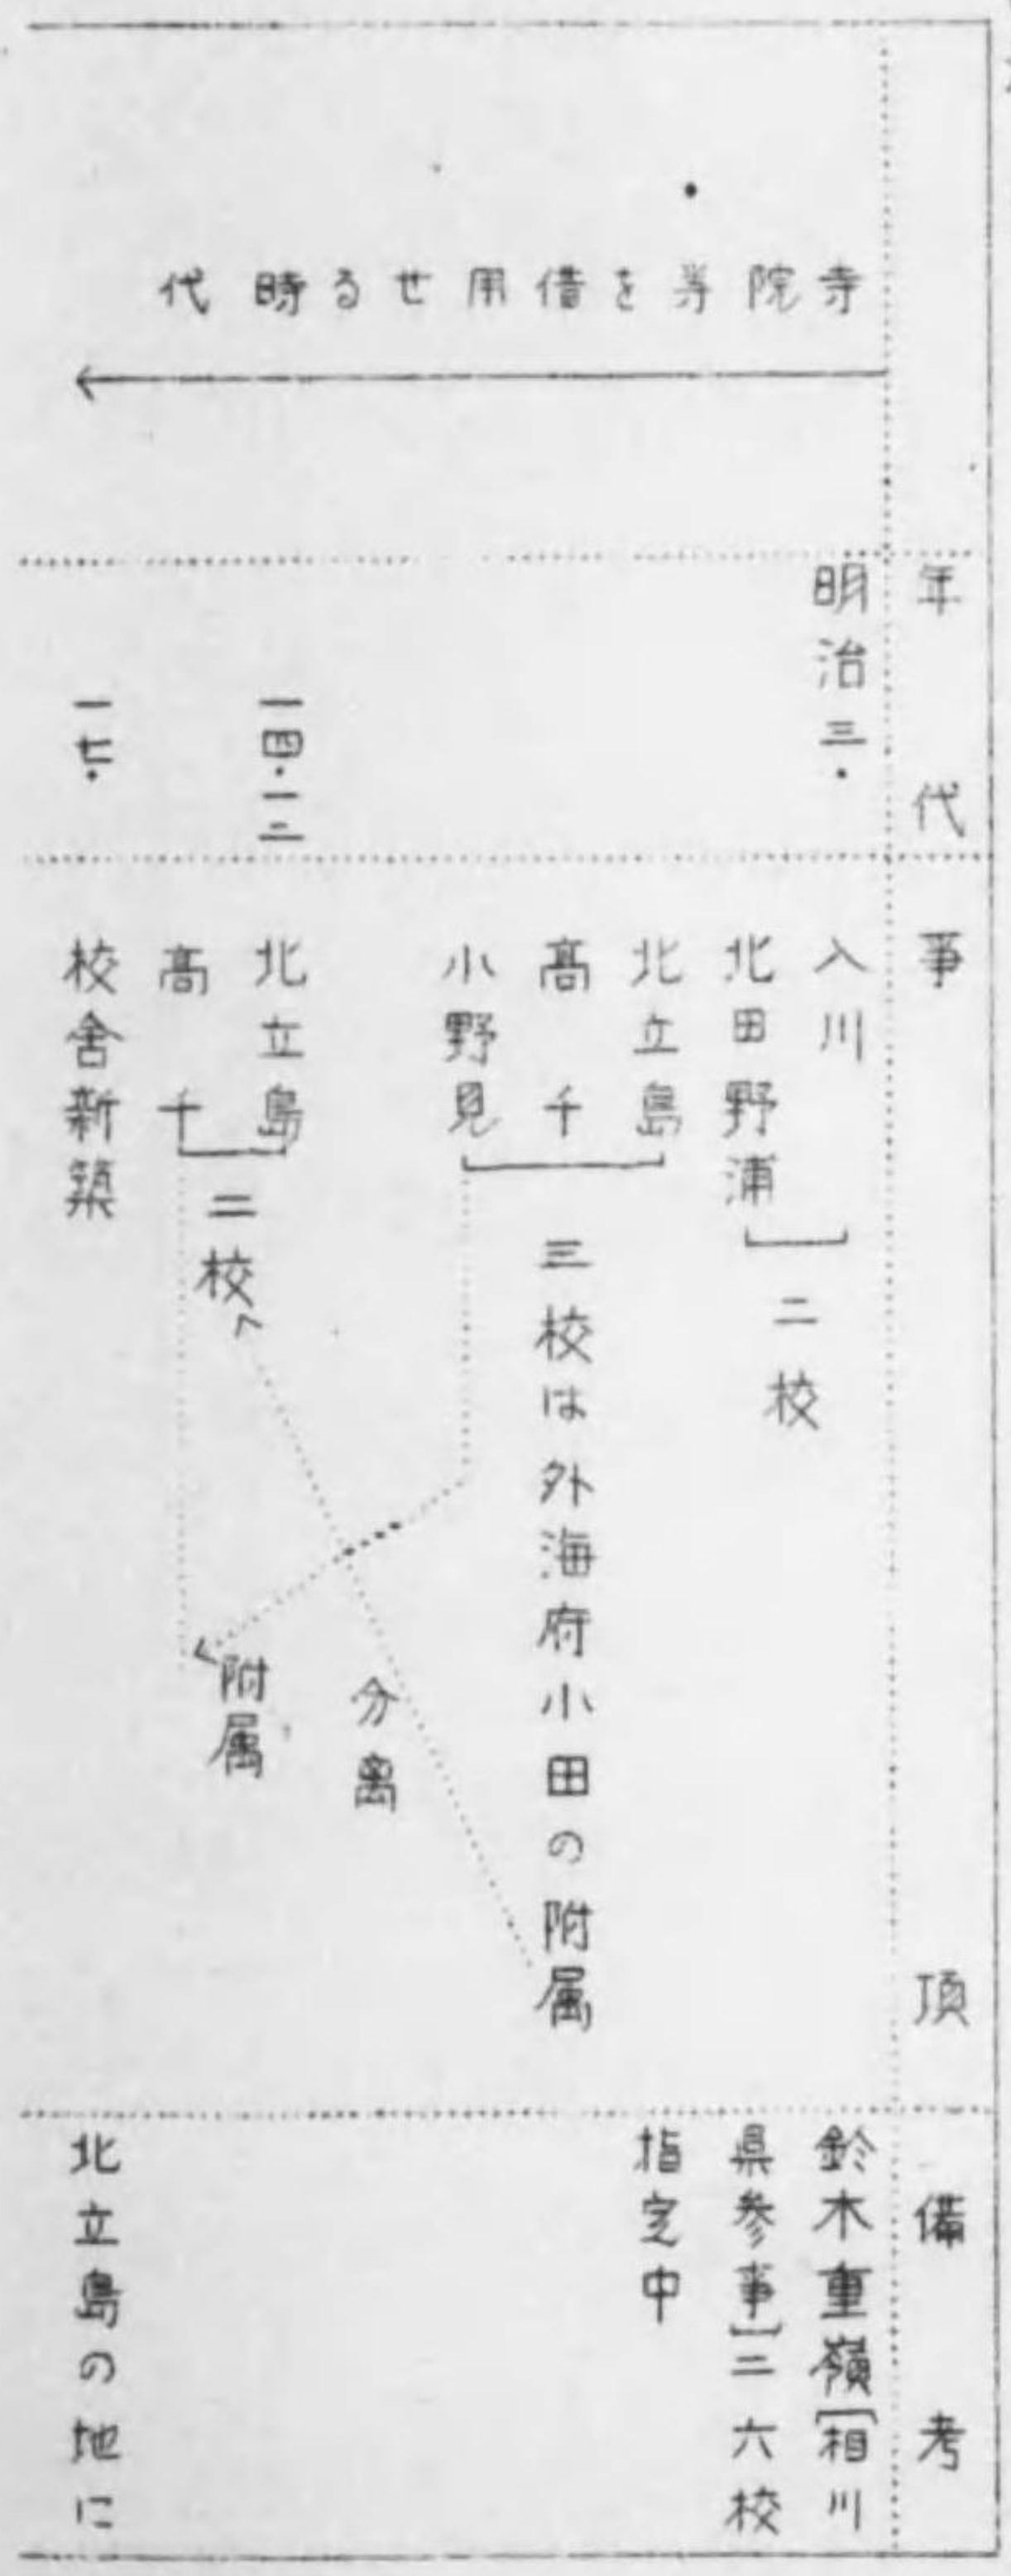 年代
事項
備考
寺院等を借用せる時代
明治三・
入川
北田野浦
二校
鈴木重嶺[相川
県参事]二六校
指定中
北立島
高千
小野見
三校は外海府小田の附属
一四・一二
北立島
高千
二校
分離
附属
一七・
校舎新築
北立島の地に